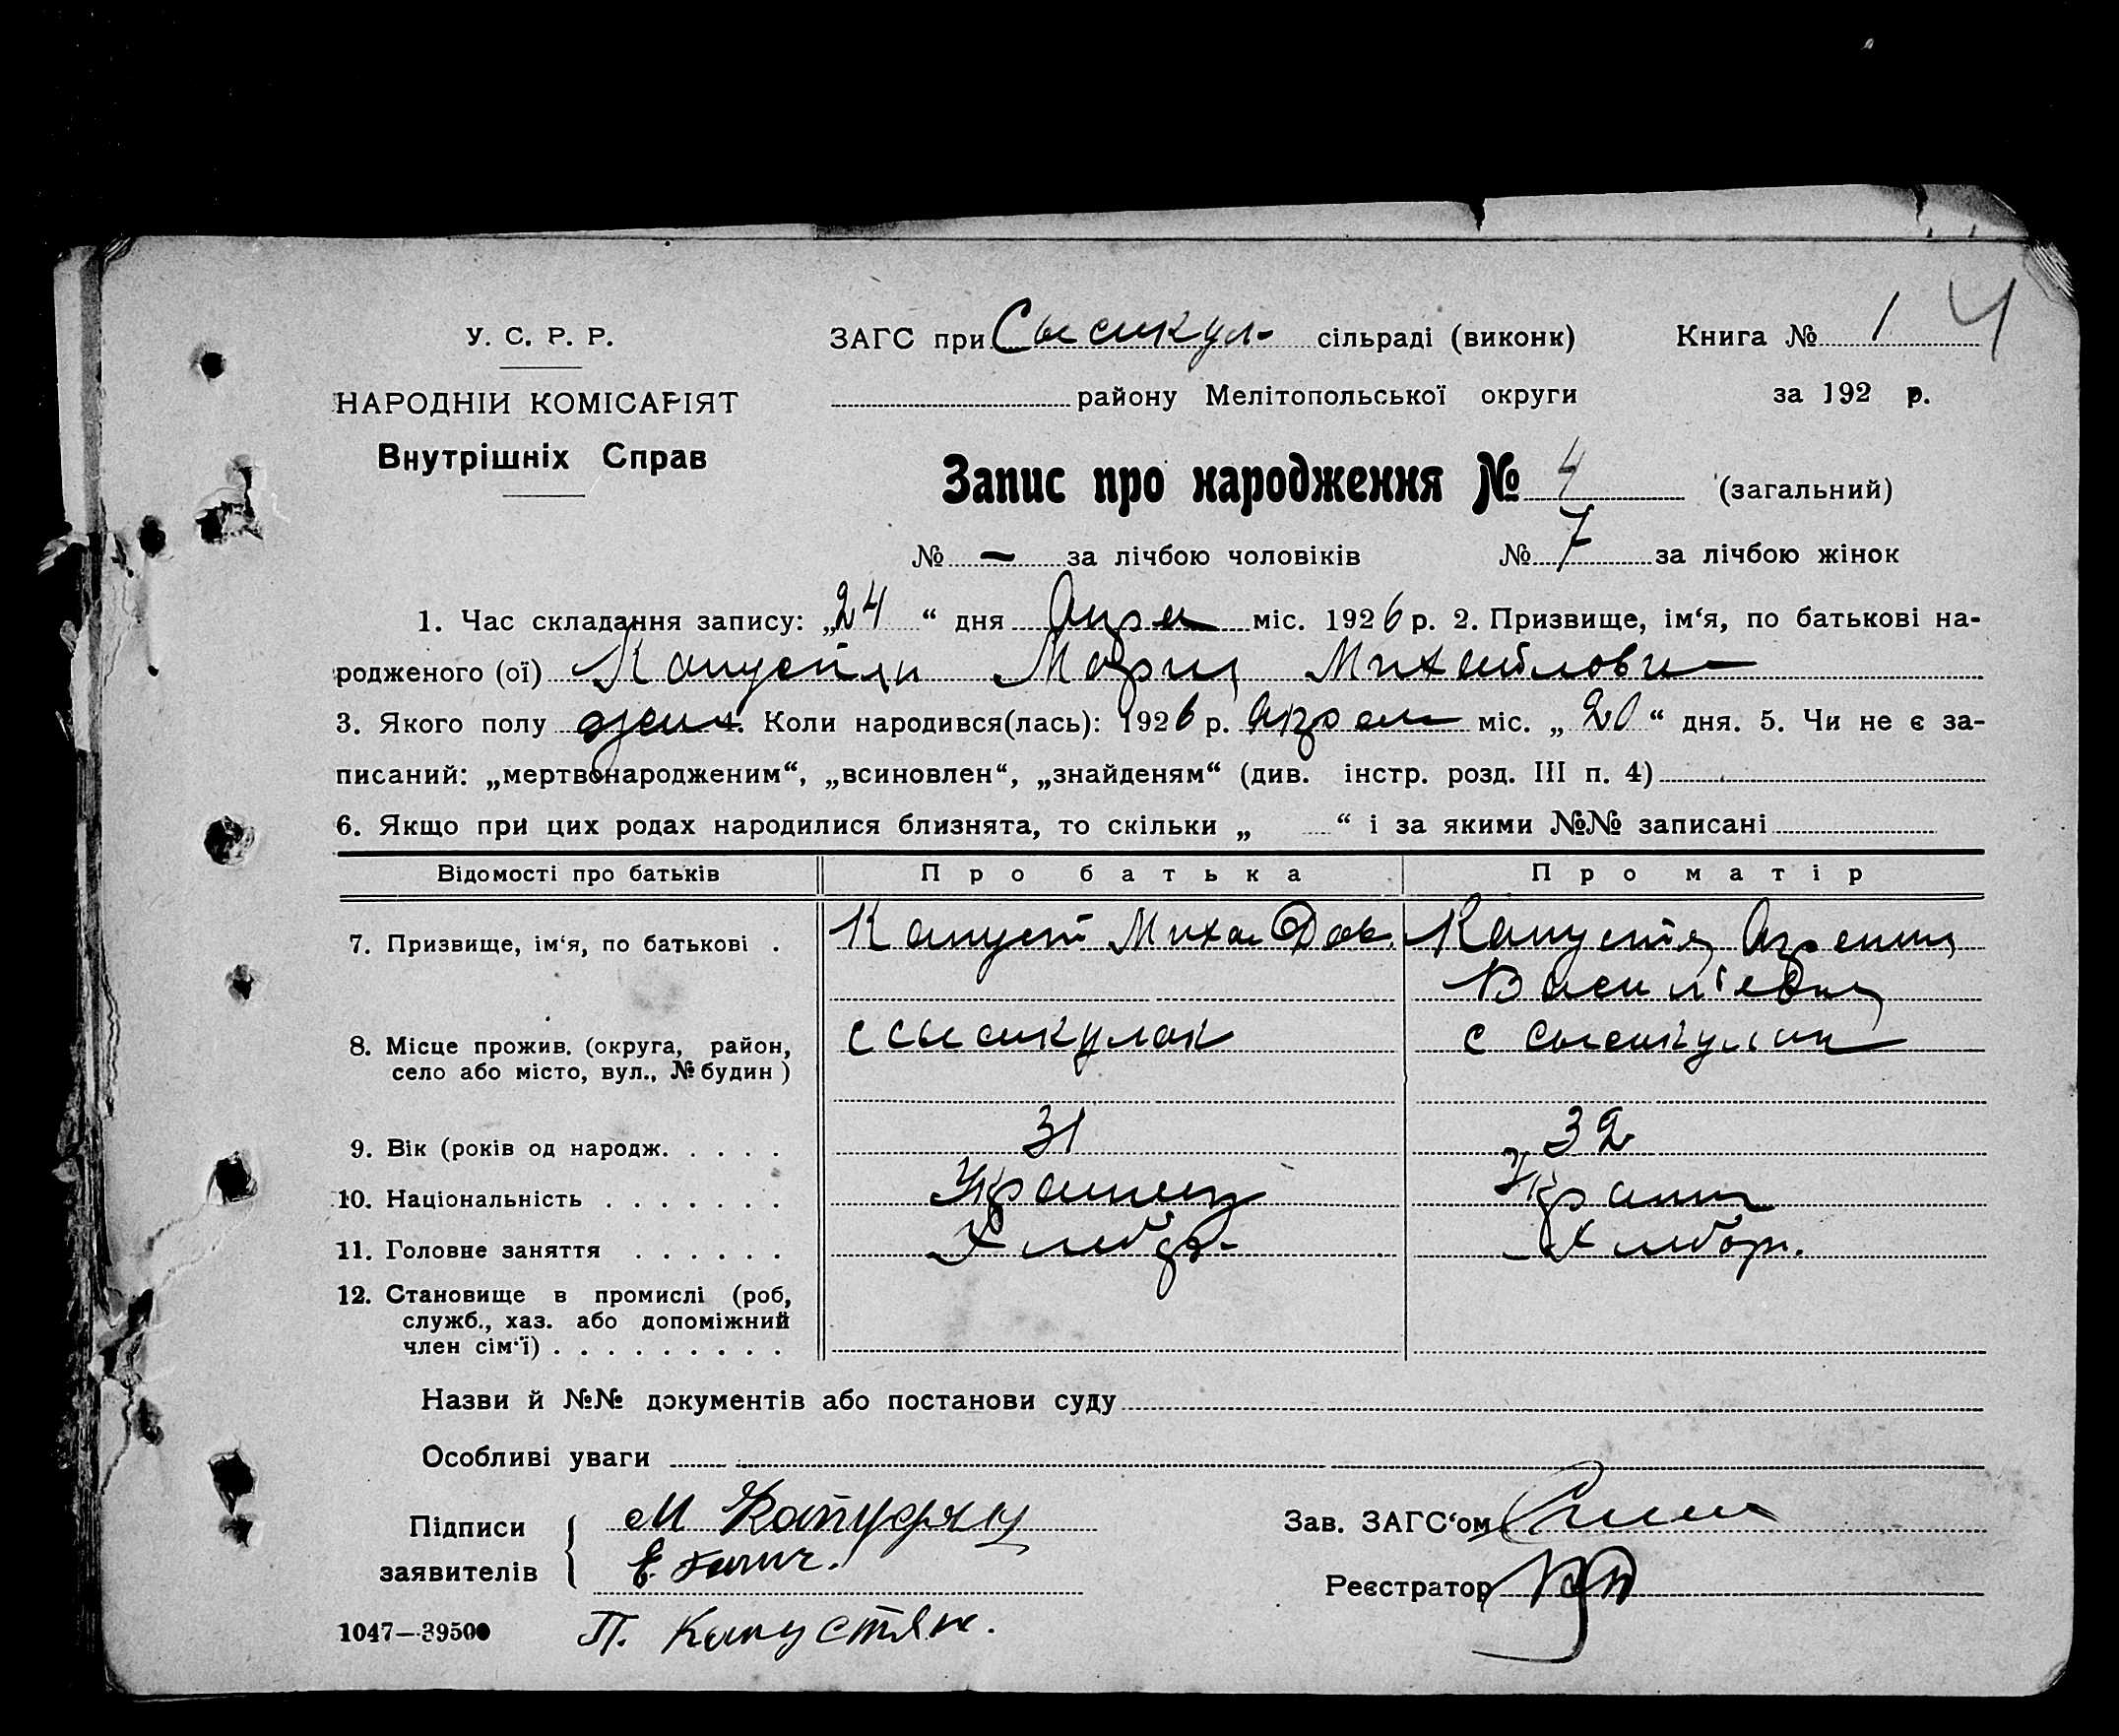 У. С. Р. Р.
НАРОДНІЙ КОМІСАРІЯТ
Внутрішніх Справ
ЗАГС при Сысикул сільраді (виконк) Книга № 1 4
району Мелітопольської округи за 192 р.
Запис про народження № 4 (загальний)
№ — за лічбою чоловіків № 7 за лічбою жінок
1. Час складання запису: „24“ дня Апрел міс. 1926 р. 2. Призвище, ім‘я, по батькові на-
родженого (ої) Мария Михайловн
3. Якого полу жен 4. Коли народився(лась): 1926 р. апрел міс. „20“ дня. 5. Чи не є за-
писаний: „мертвонародженим“, „всиновлен“, „знайденям“ (див. інстр. розд. III п. 4)
6. Якщо при цих родах народилися близнята, то скільки „ “ і за якими №№ записані
Відомості про батьків Про батька Про матір
7. Призвище, ім‘я, по батькові . Капуст Миха Капустя
8. Місце прожив. (округа, район, с Сысикулак с
село або місто, вул., № будин )
9. Вік (років од народж. . . . . 31 32
10. Національність . . . . . . . Украинец Украин
11. Головне заняття . . . . . . Хлебор. Хлебор.
12. Становище в промислі (роб,
служб., хаз. або допоміжний
член сім‘ї) . . . . . . . . .
Назви й №№ документів або постанови суду
Особливі уваги
Підписи М Зав. ЗАГС‘ом
заявителів Е. Реєстратор
1047—39500 П. Капустян.